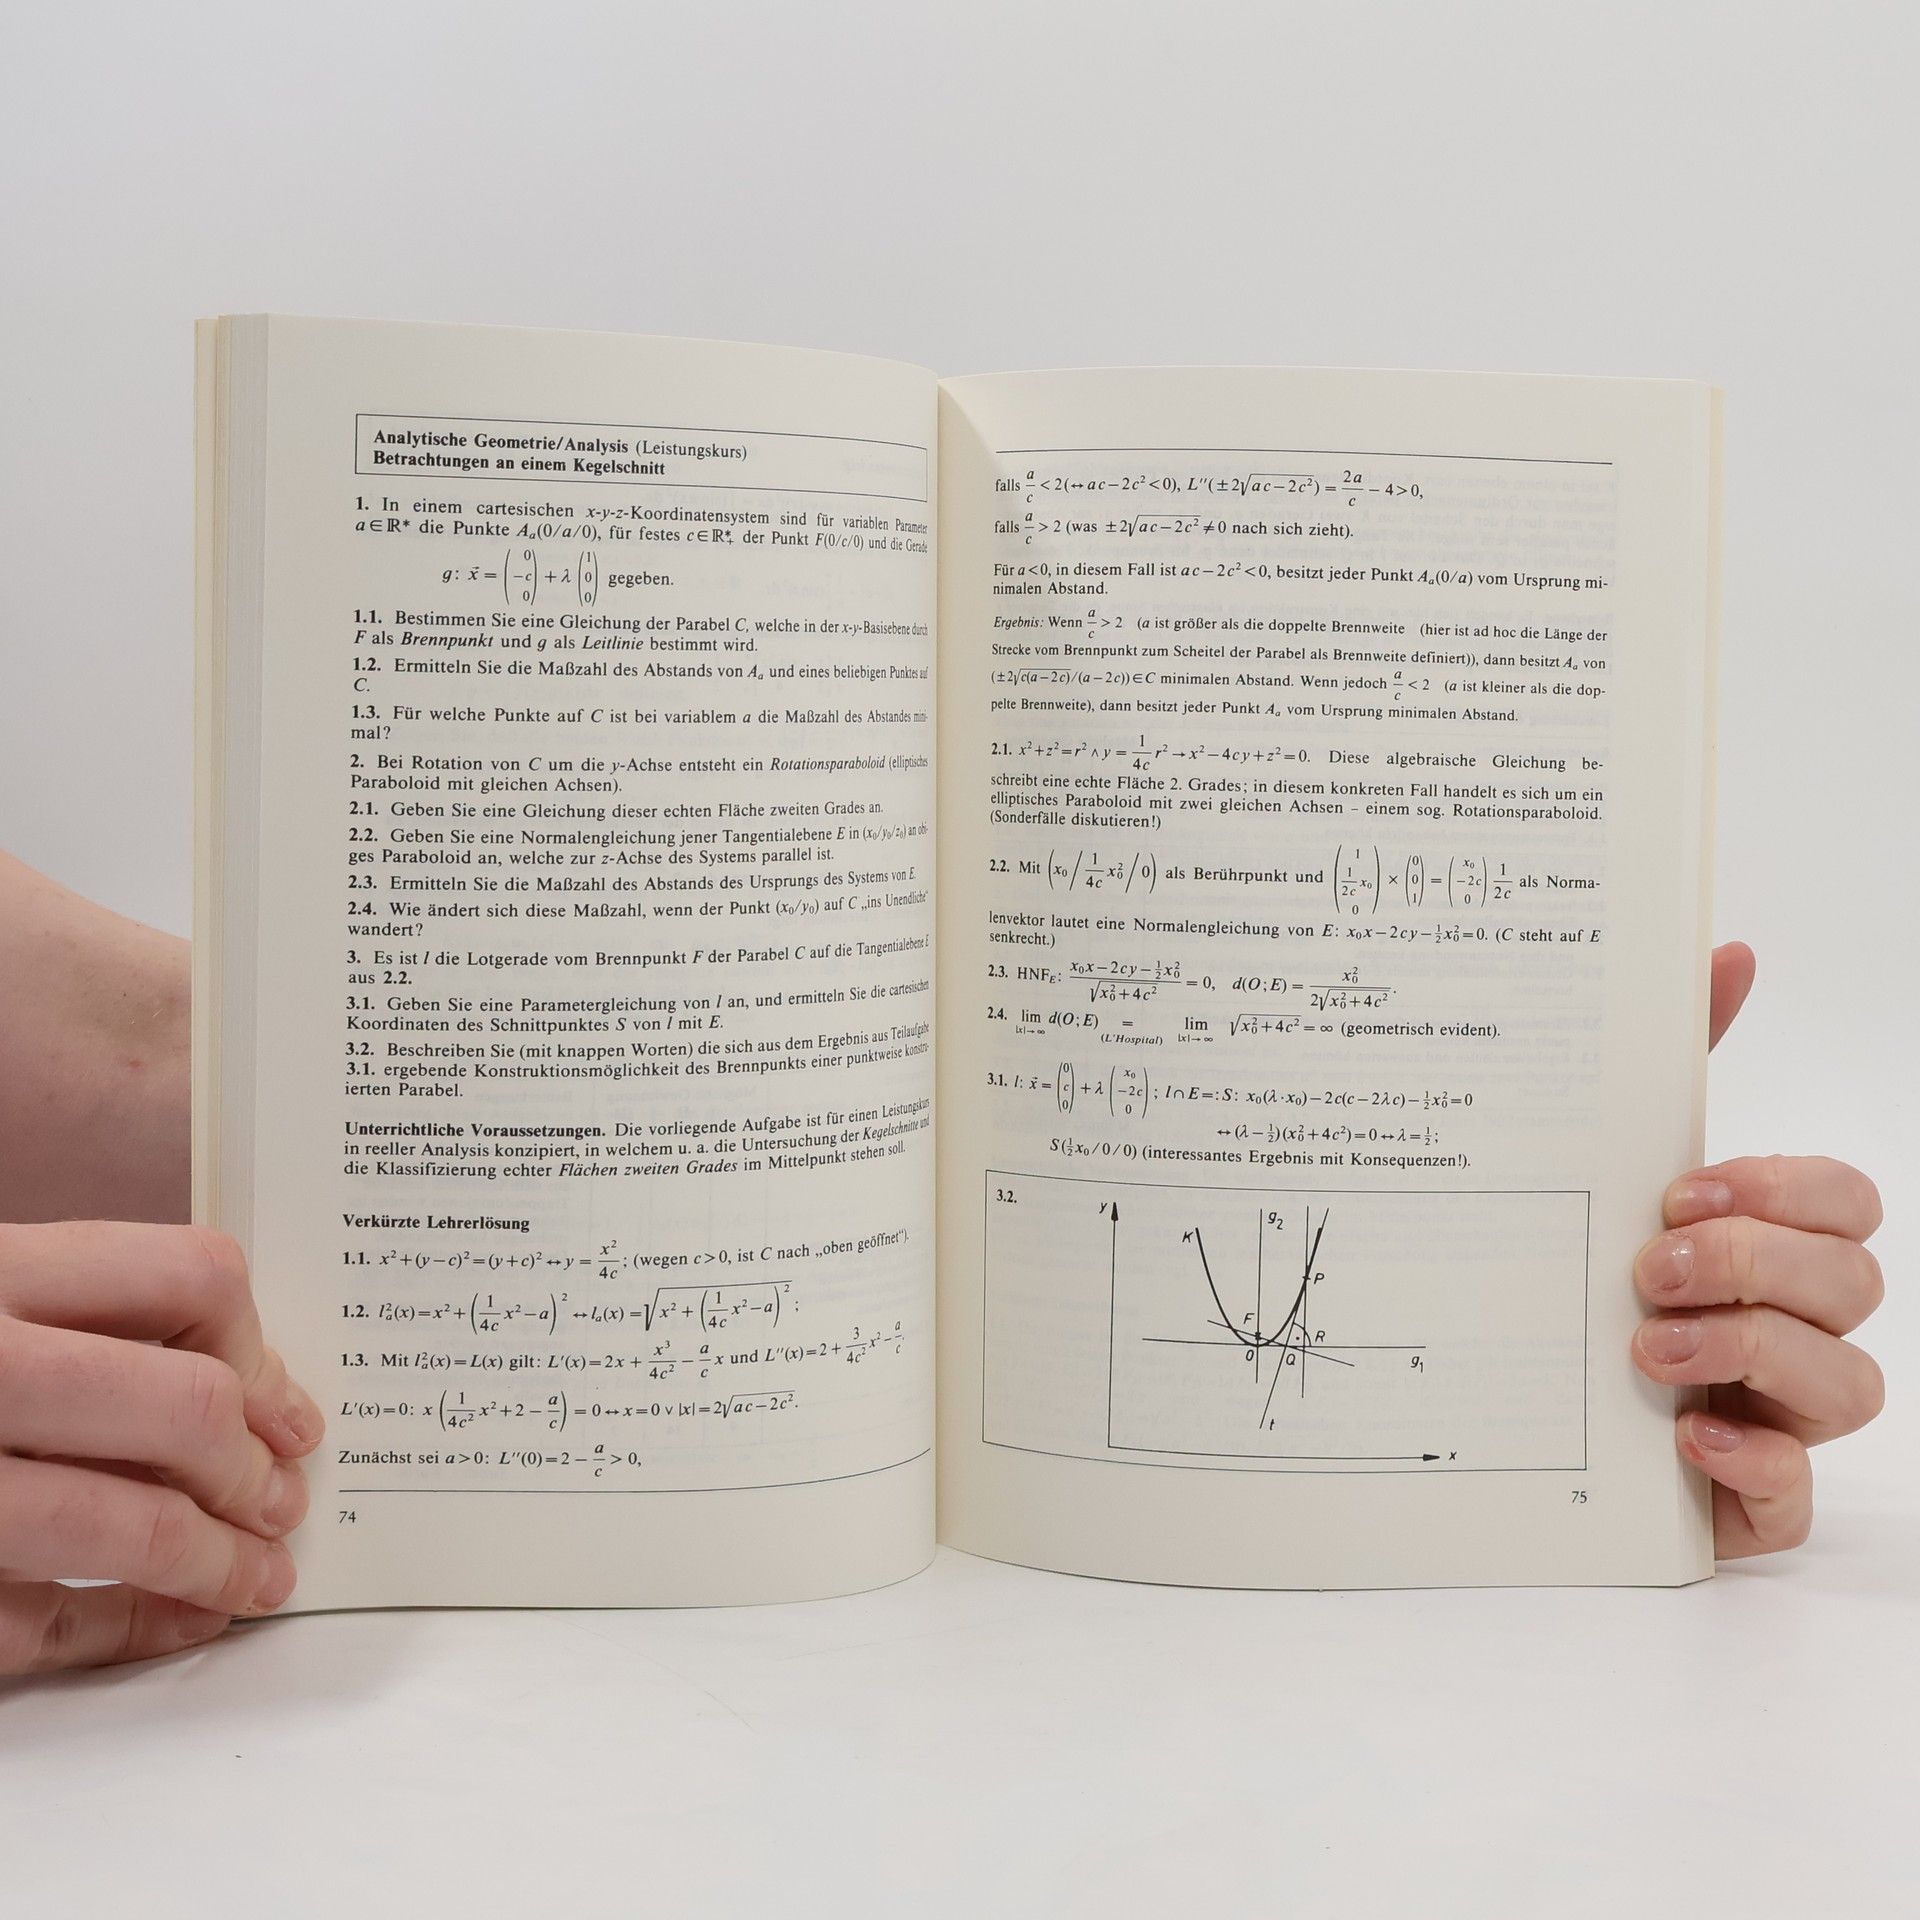 Analytische Geometrie/Analysis (Leistungskurs)
Betrachtungen an einem Kegelschnitt
1. In einem cartesischen x-y-z-Koordinatensystem sind für variablen Parameter
a∈ℝ* die Punkte Aₐ(0/a/0), für festes c∈ℝ*₊ der Punkt F(0/c/0) und die Gerade
g: x⃗ = (0 −c 0) + λ (1 0 0) gegeben.
1.1. Bestimmen Sie eine Gleichung der Parabel C, welche in der x-y-Basisebene durch
F als Brennpunkt und g als Leitlinie bestimmt wird.
1.2. Ermitteln Sie die Maßzahl des Abstands von Aₐ und eines beliebigen Punktes auf
C.
1.3. Für welche Punkte auf C ist bei variablem a die Maßzahl des Abstandes mini-
mal?
2. Bei Rotation von C um die y-Achse entsteht ein Rotationsparaboloid (elliptisches
Paraboloid mit gleichen Achsen).
2.1. Geben Sie eine Gleichung dieser echten Fläche zweiten Grades an.
2.2. Geben Sie eine Normalengleichung jener Tangentialebene E in (x₀/y₀/z₀) an obi-
ges Paraboloid an, welche zur z-Achse des Systems parallel ist.
2.3. Ermitteln Sie die Maßzahl des Abstands des Ursprungs des Systems von E.
2.4. Wie ändert sich diese Maßzahl, wenn der Punkt (x₀/y₀) auf C „ins Unendliche“
wandert?
3. Es ist l die Lotgerade vom Brennpunkt F der Parabel C auf die Tangentialebene E
aus 2.2.
3.1. Geben Sie eine Parametergleichung von l an, und ermitteln Sie die cartesischen
Koordinaten des Schnittpunktes S von l mit E.
3.2. Beschreiben Sie (mit knappen Worten) die sich aus dem Ergebnis aus Teilaufgabe
3.1. ergebende Konstruktionsmöglichkeit des Brennpunkts einer punktweise konstru-
ierten Parabel.
Unterrichtliche Voraussetzungen. Die vorliegende Aufgabe ist für einen Leistungskurs
in reeller Analysis konzipiert, in welchem u. a. die Untersuchung der Kegelschnitte und
die Klassifizierung echter Flächen zweiten Grades im Mittelpunkt stehen soll.
Verkürzte Lehrerlösung
1.1. x²+(y−c)²=(y+c)² ↔ y = x²/4c; (wegen c>0, ist C nach „oben geöffnet“).
1.2. lₐ²(x)=x²+(1/4c x²−a)² ↔ lₐ(x)=√(x²+(1/4c x²−a)²);
1.3. Mit lₐ²(x)=L(x) gilt: L′(x)=2x + x³/4c² − a/c x und L″(x)=2+ 3/4c² x² − a/c.
L′(x)=0: x (1/4c² x²+2 − a/c) = 0 ↔ x=0 ∨ |x|=2√(ac−2c²).
Zunächst sei a>0: L″(0)=2 − a/c > 0,
74
falls a/c < 2(↔ac−2c²<0), L″(±2√(ac−2c²)) = 2a/c − 4>0,
falls a/c > 2 (was ±2√(ac−2c²) ≠ 0 nach sich zieht).
Für a<0, in diesem Fall ist ac−2c²<0, besitzt jeder Punkt Aₐ(0/a) vom Ursprung mi-
nimalen Abstand.
Ergebnis: Wenn a/c > 2 (a ist größer als die doppelte Brennweite (hier ist ad hoc die Länge der
Strecke vom Brennpunkt zum Scheitel der Parabel als Brennweite definiert)), dann besitzt Aₐ von
(±2√(c(a−2c))/(a−2c))∈C minimalen Abstand. Wenn jedoch a/c < 2 (a ist kleiner als die dop-
pelte Brennweite), dann besitzt jeder Punkt Aₐ vom Ursprung minimalen Abstand.
2.1. x²+z²=r² ∧ y = 1/4c r² → x²−4cy+z²=0. Diese algebraische Gleichung be-
schreibt eine echte Fläche 2. Grades; in diesem konkreten Fall handelt es sich um ein
elliptisches Paraboloid mit zwei gleichen Achsen – einem sog. Rotationsparaboloid.
(Sonderfälle diskutieren!)
2.2. Mit (x₀ / 1/4c x₀² / 0) als Berührpunkt und (1 1/2c x₀ 0) × (0 0 1) = (x₀ −2c 0) 1/2c als Norma-
lenvektor lautet eine Normalengleichung von E: x₀x−2cy−½x₀²=0. (C steht auf E
senkrecht.)
2.3. HNF_E: (x₀x−2cy−½x₀²)/√(x₀²+4c²) = 0, d(O;E) = x₀²/2√(x₀²+4c²).
2.4. lim |x|→∞ d(O;E) = (L'Hospital) lim |x|→∞ √(x₀²+4c²) = ∞ (geometrisch evident).
3.1. l: x⃗ = (0 c 0) + λ (x₀ −2c 0); l∩E=:S: x₀(λ·x₀)−2c(c−2λc)−½x₀²=0
↔(λ−½)(x₀²+4c²)=0↔λ=½;
S(½x₀/0/0) (interessantes Ergebnis mit Konsequenzen!).
3.2.
y
K
g₂
P
F
R
O
Q
g₁
t
x
75